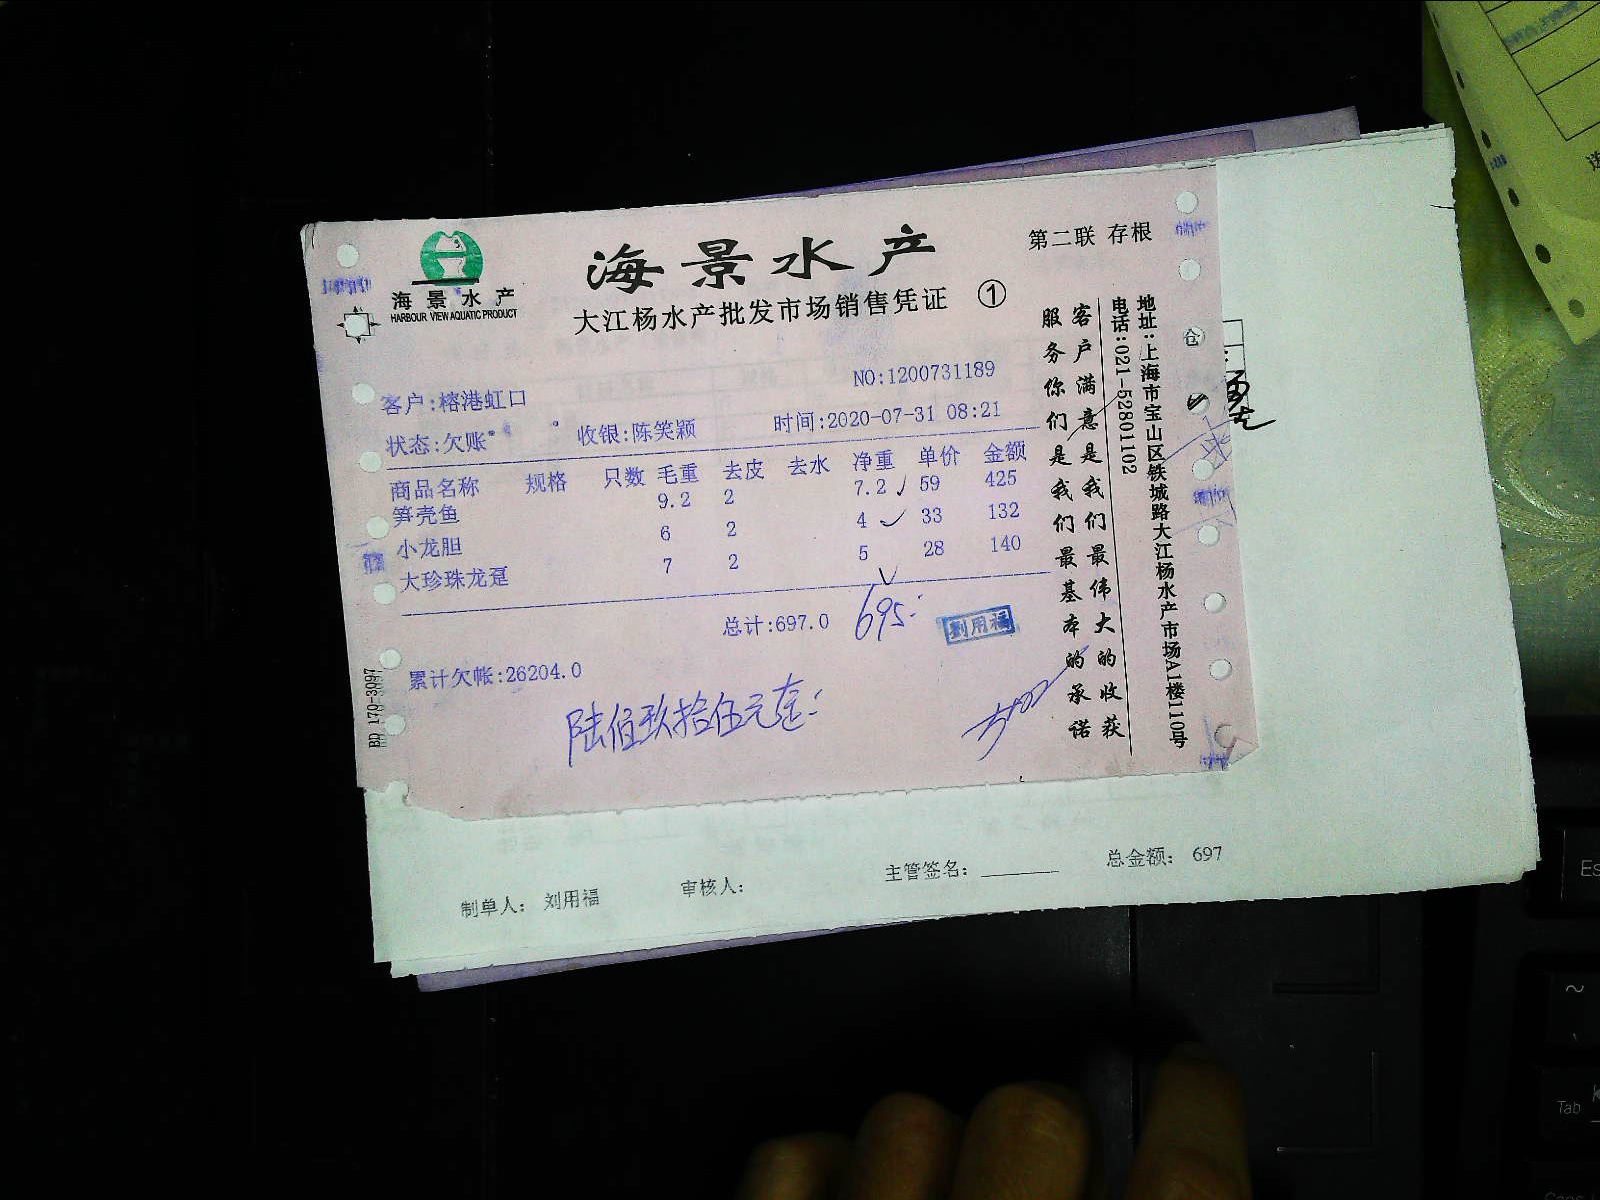 海景水产
HARBOUR VIEW AQUATIC PRODUCT
海景水产
第二联 存根
大江杨水产批发市场销售凭证 ①
NO:1200731189
客户:榕港虹口
状态:欠账 收银:陈笑颖 时间:2020-07-31 08:21
商品名称 规格 只数 毛重 去皮 去水 净重 单价 金额
笋壳鱼 9.2 2 7.2 59 425
小龙胆 6 2 4 33 132
大珍珠龙趸 7 2 5 28 140
总计:697.0 695
劉用福
累计欠帐:26204.0
陆佰玖拾伍元

BD 179-3097
客户满意是我们最伟大的收获
服务你们是我们最基本的承诺
地址:上海市宝山区铁城路大江杨水产市场A1楼110号
电话:021-52801102
仓
制单人: 刘用福 审核人: 主管签名: 总金额: 697
Es
~
Tab